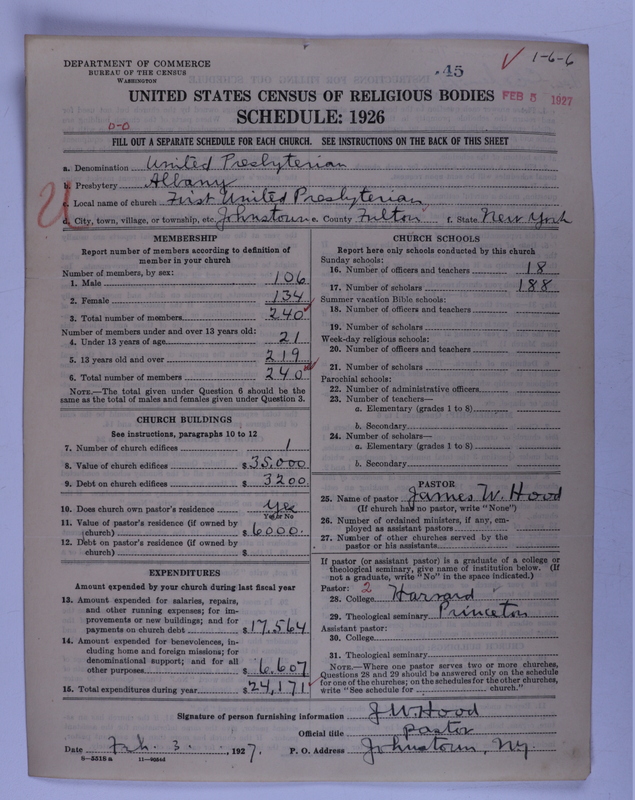 DEPARTMENT OF COMMERCE
BUREAU OF THE CENSUS
WASHINGTON
.45
1-6-6
UNITED STATES CENSUS OF RELIGIOUS BODIES
FEB 5 1927
SCHEDULE: 1926
0-0
FILL OUT A SEPARATE SCHEDULE FOR EACH CHURCH. SEE INSTRUCTIONS ON THE BACK OF THIS SHEET
a. Denomination United Presbyterian
b. Presbytery Albany
c. Local name of church First United Presbyterian
d. City, town, village, or township, etc. Johnstown e. County Fulton f. State New York
MEMBERSHIP
Report number of members according to definition of
member in your church
Number of members, by sex:
1. Male 106
2. Female 134
3. Total number of members 240
Number of members under and over 13 years old:
4. Under 13 years of age 21
5. 13 years old and over 219
6. Total number of members 240
NOTE.—The total given under Question 6 should be the
same as the total of males and females given under Question 3.
CHURCH BUILDINGS
See instructions, paragraphs 10 to 12
7. Number of church edifices 1
8. Value of church edifices $35,000
9. Debt on church edifices $3200
10. Does church own pastor's residence Yes
Yes or No
11. Value of pastor's residence (if owned by
church) $6000.
12. Debt on pastor's residence (if owned by
church) $
EXPENDITURES
Amount expended by your church during last fiscal year
13. Amount expended for salaries, repairs,
and other running expenses; for im-
provements or new buildings; and for
payments on church debt $17,564
14. Amount expended for benevolences, in-
cluding home and foreign missions; for
denominational support; and for all
other purposes $6,607
15. Total expenditures during year $24,171
CHURCH SCHOOLS
Report here only schools conducted by this church
Sunday schools:
16. Number of officers and teachers 18
17. Number of scholars 188
Summer vacation Bible schools:
18. Number of officers and teachers
19. Number of scholars
Week-day religious schools:
20. Number of officers and teachers
21. Number of scholars
Parochial schools:
22. Number of administrative officers
23. Number of teachers—
a. Elementary (grades 1 to 8)
b. Secondary
24. Number of scholars—
a. Elementary (grades 1 to 8)
b. Secondary
PASTOR
25. Name of pastor James W. Hood
(If church has no pastor, write "None")
26. Number of ordained ministers, if any, em-
ployed as assistant pastors
27. Number of other churches served by the
pastor or his assistants
If pastor (or assistant pastor) is a graduate of a college or
theological seminary, give name of institution below. (If
not a graduate, write "No" in the space indicated.)
Pastor: 2
28. College Harvard
29. Theological seminary Princeton
Assistant pastor:
30. College
31. Theological seminary
NOTE.—Where one pastor serves two or more churches,
Questions 28 and 29 should be answered only on the schedule
for one of the churches; on the schedules for the other churches,
write "See schedule for church."
Signature of person furnishing information J W. Hood
Official title Pastor
Date Feb. 3. , 1927. P. O. Address Johnstown, N.Y.
8-5518 a